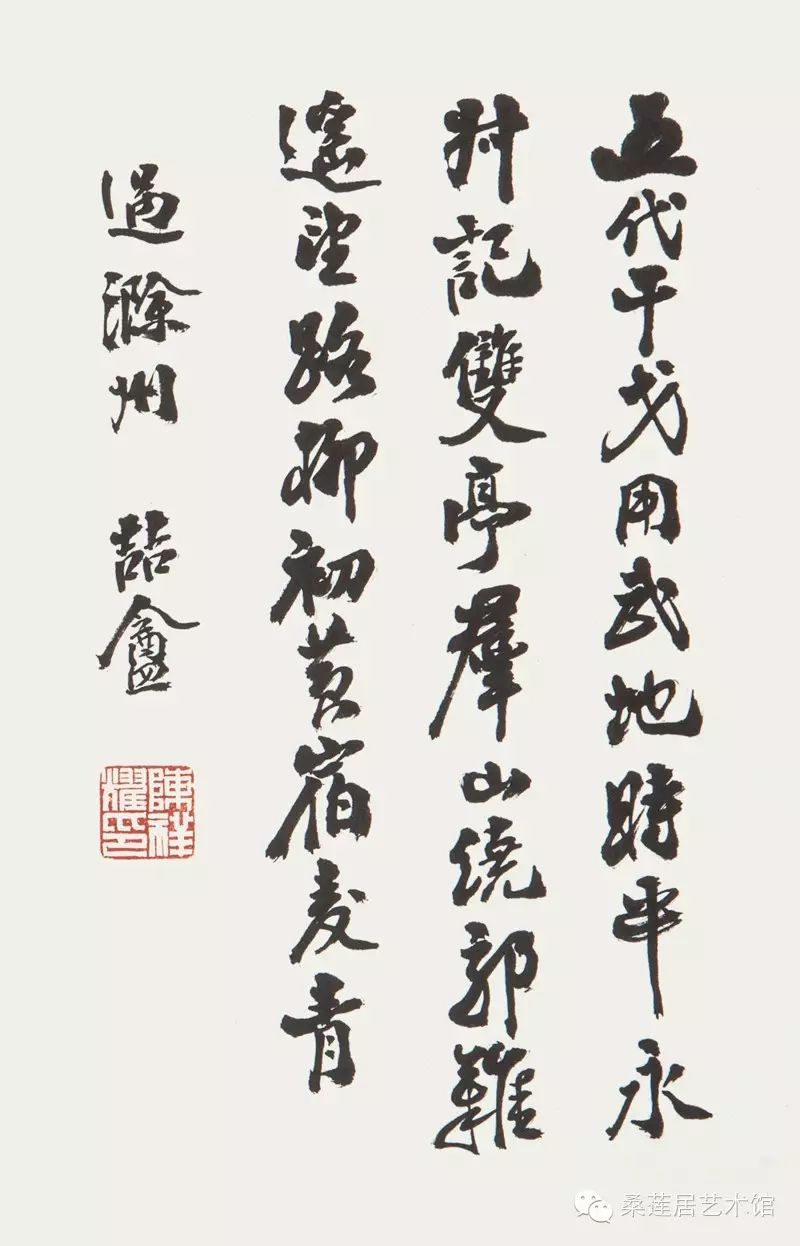 五代干戈用武地時平永
叔記雙亭羣山繞郭難
遙望路柳初黃宿麦青
過滁州 喆盦
陳祥
耀印
桑莲居艺术馆